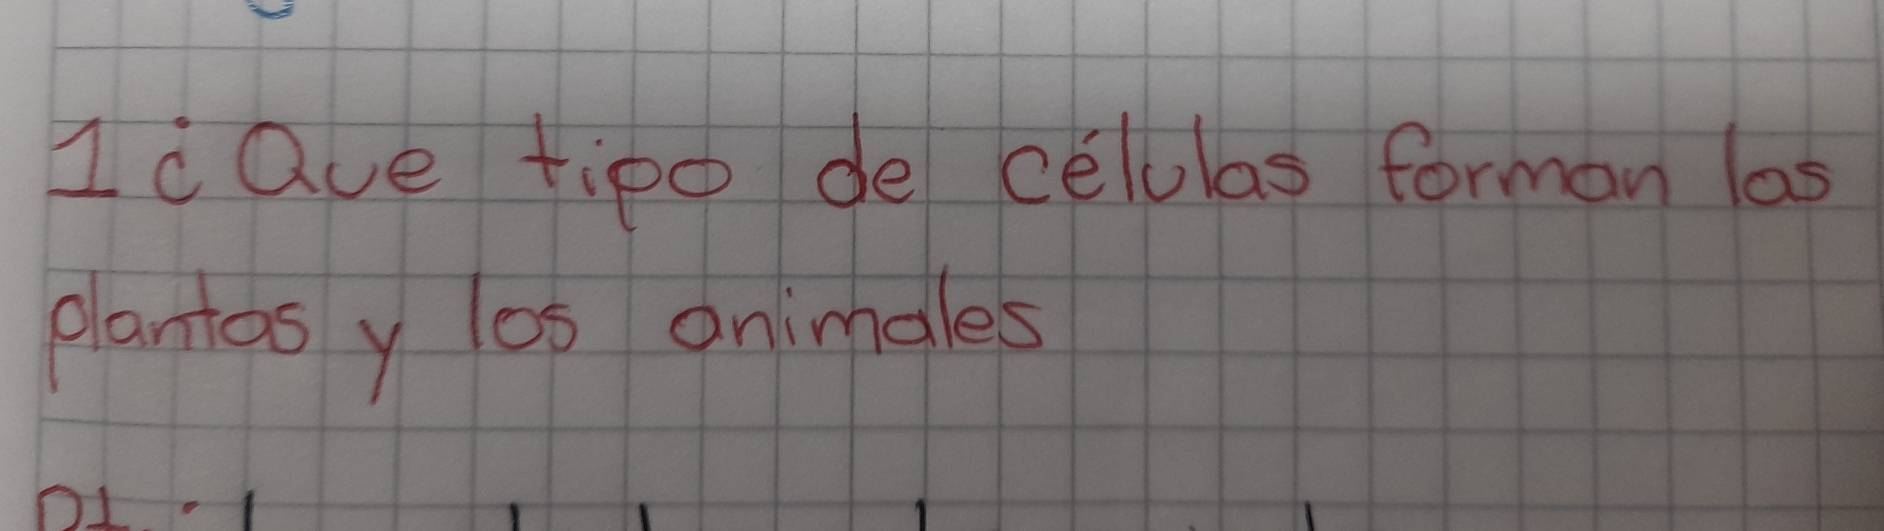 1 ¿Que tipo de células forman las
plantas y los animales